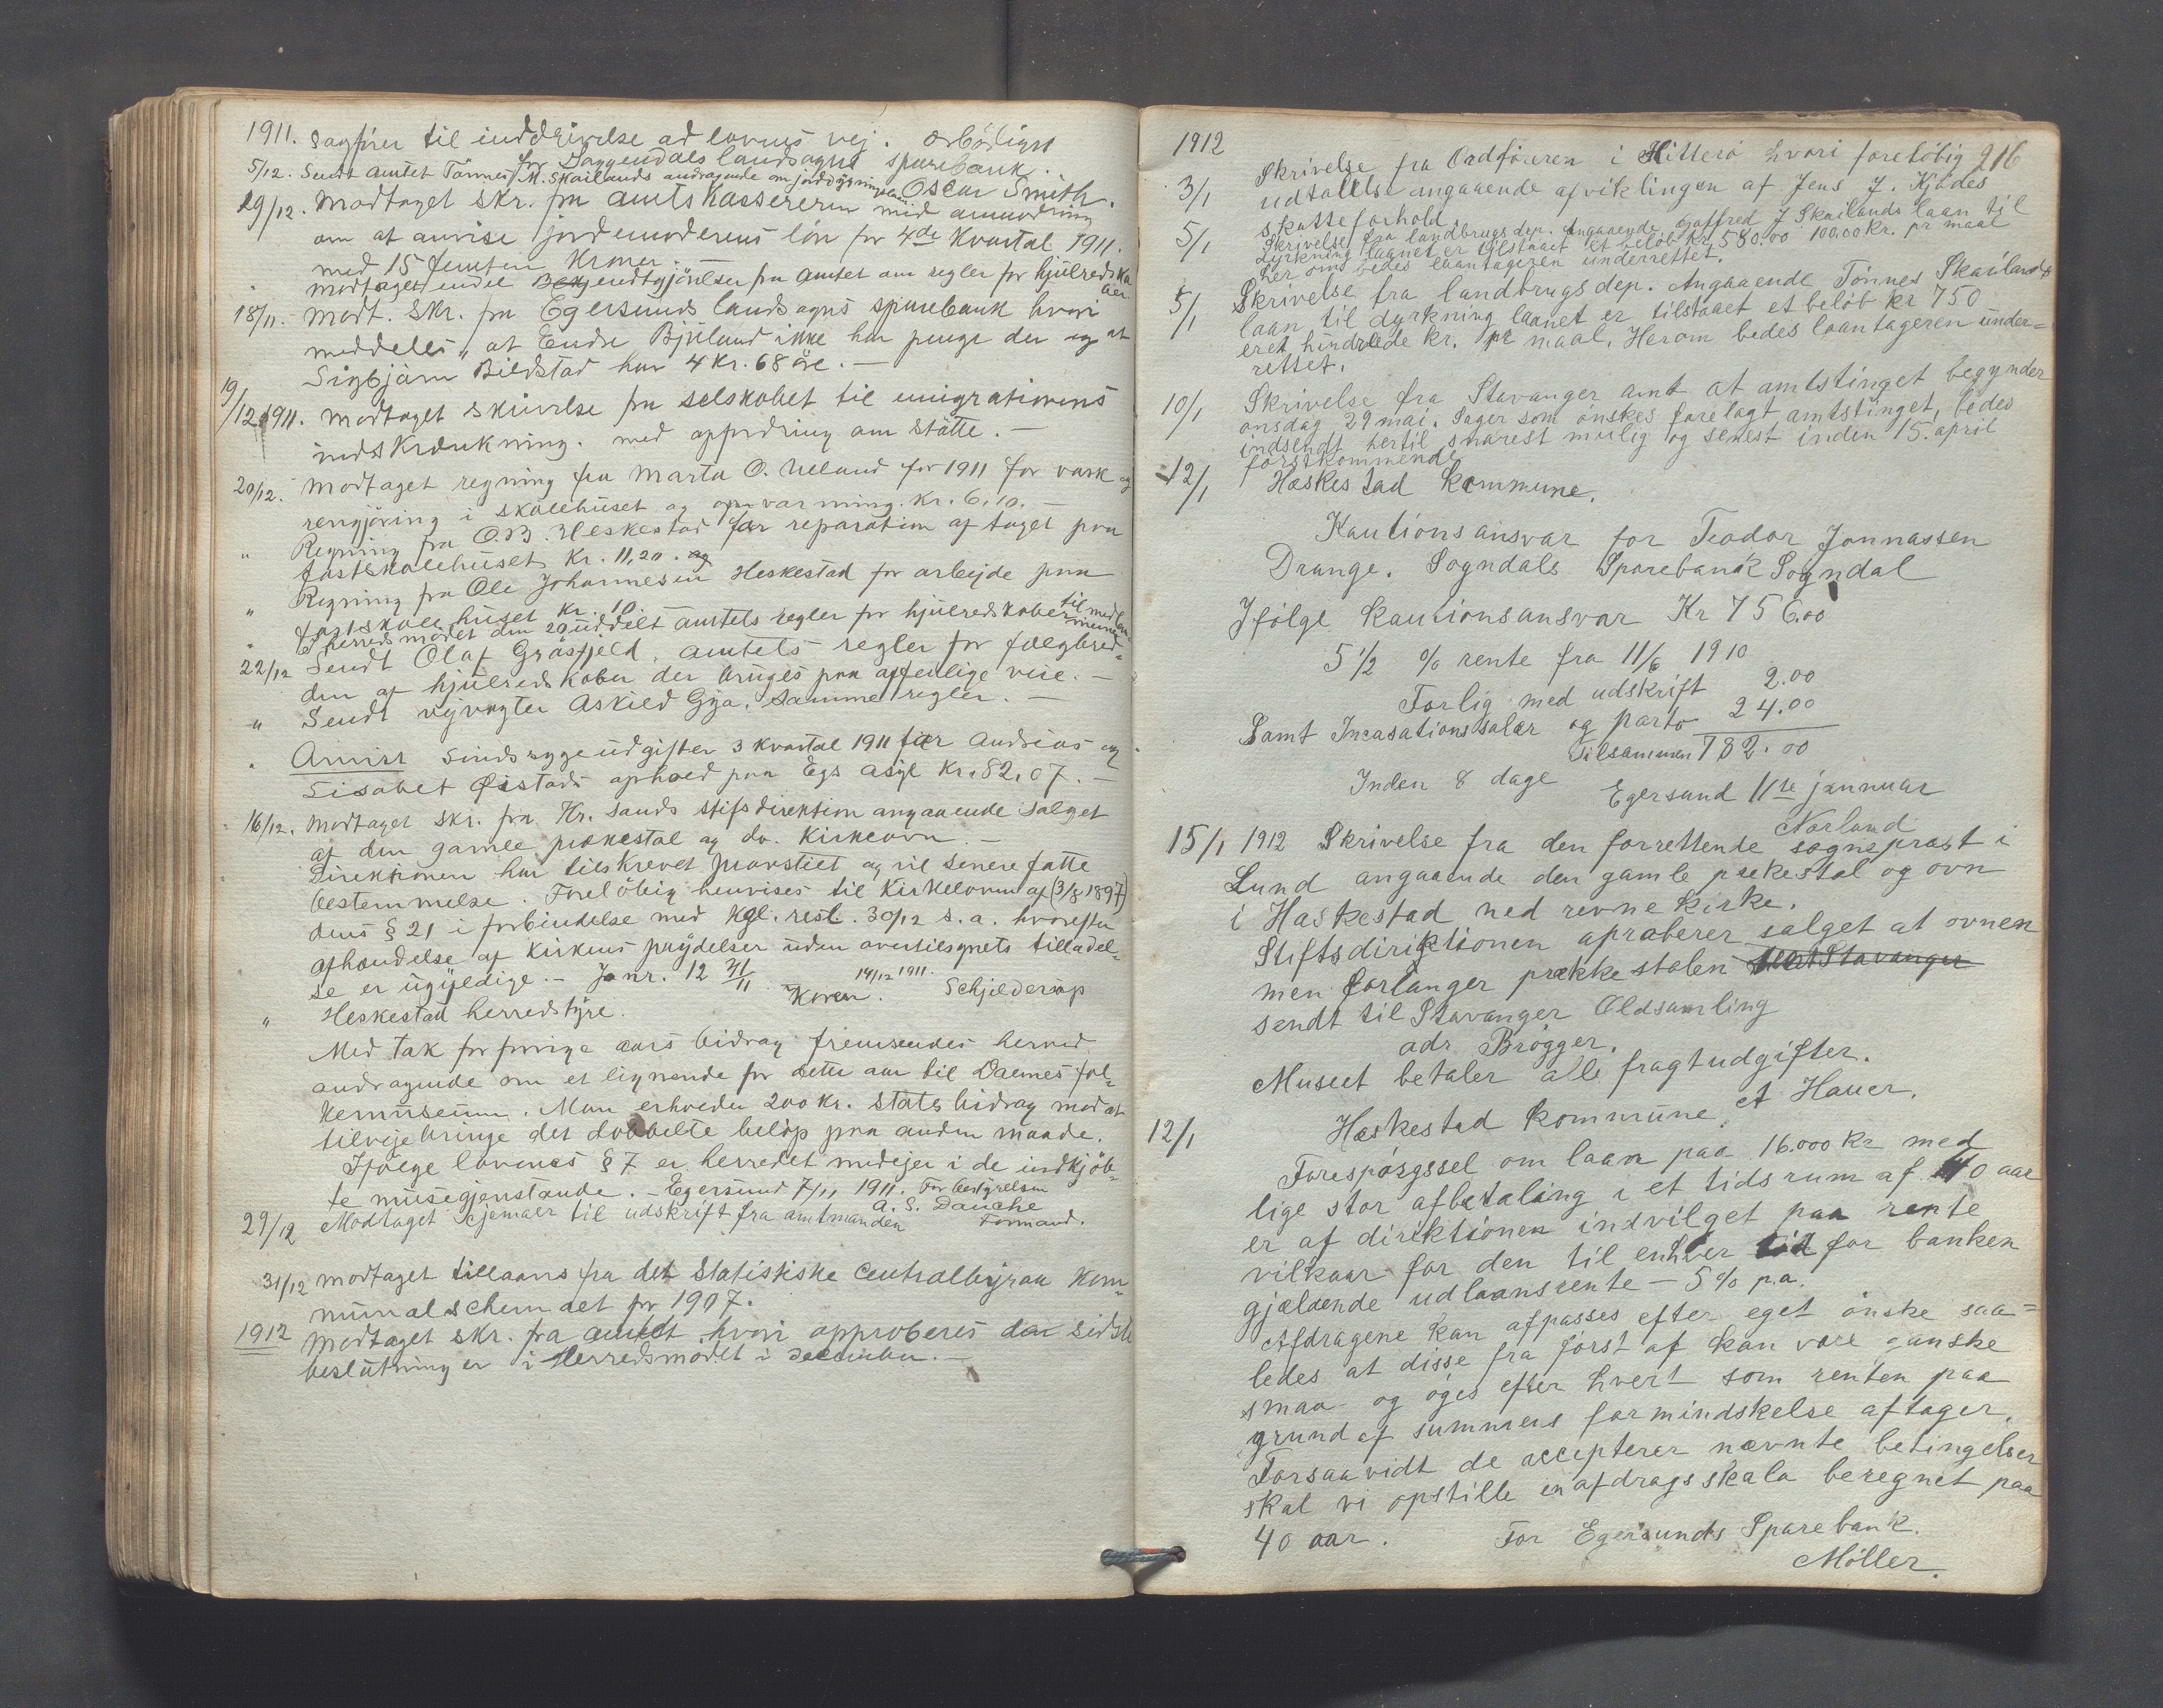 1911. Sagfører til inddrivelse ad lovens vej. Ærbödigst
for Daggendals landsogns sparebank.
5/12. Sendt amtet Tønnes M. Skailands andragende om jorddyrkningslaan Oscar Smith.
29/12. Modtaget skr. fra amtskassereren med anmodning
om at anvise jordemoderens lön for 4de kvartal 1911.
med 15 femten kroner.
" Modtaget endel Bekjendtgjörelser fra amtet om regler for hjulredska
ber.
18/11. Modt. skr. fra Egersunds landsogns sparebank hvori
meddeles, at Endre Bjuland ikke har penge der og at
Sigbjörn Bildstad har 4 kr. 68 öre. —
19/12 1911. Modtaget skrivelse fra selskabet til emigrationens
indskrænkning. med opfordring om stötte. —
20/12. Modtaget regning fra Marta O. Ueland for 1911 for vask og
rengjöring i skolehuset og opvarmning. kr. 6,10. —
" Regning fra O.B. Heskestad for reparation af taget paa
fastskolehuset kr. 11,20. og
" Regning fra Ole Johannesen Heskestad for arbejde paa
fastskolehuset kr. 10
" I herredsmödet den 20 uddelt amtets regler for hjulredskaber til medlem-
merne
22/12 Sendt Olaf Gräsfjeld, amtets regler for fælgbred-
den af hjulredskaber der bruges paa offentlige veie. —
" Sendt vejvogter Askild Gya, samme regler. —
" Anvist sindssygeudgifter 3 kvartal 1911 for Andreas og
Lisabet Östads ophold paa Egs asyl kr. 82,07. —
16/12. Modtaget skr. fra Kr.sands stiftsdirektion angaaende salget
af den gamle prækestol og do. kirkeovn. —
Direktionen har tilskrevet provstiet og vil senere fatte
bestemmelse. Forelöbig henvises til Kirkeloven af (3/8 1897)
dens § 21 i forbindelse med kgl. resl. 30/12 s.a. hvorefter
afhændelse af kirkens prydelser uden overtilsynets tilladel-
se er ugyldige. — Jonr. 12 21/11 14/12 1911.
Koren. Schjelderup
" Heskestad herredstyre.
Med tak for forrige aars bidrag fremsendes herved
andragende om et lignende for dette aar til Dalernes fol-
kemuseum. Man erholder 200 kr. statsbidrag mod at
tilvejebringe det dobbelte belöp paa anden maade.
Ifölge lovenes § 7 er herredet medejer i de indkjöb-
te museegjenstande. — Egersund 7/11 1911. For bestyrelsen
A. S. Dauche
Formand.
29/12 Modtaget skjemaer til udskrift fra amtmanden
31/12 Modtaget tillaans fra det Statistiske Centralbyraa kom-
munalschemaet for 1907.
1912 Modtaget skr. fra amtet hvori approberes de sidste
beslutninger i Herredsmödet i december. —
1912
216
3/1 Skrivelse fra Ordföreren i Hitterö hvori forelöbig
udtalelse angaaende afviklingen af Jens J. Kjödes
skatteforhold.
5/1 Skrivelse fra landbrugsdep. Angaaende Gotfred J Skailands laan til
Dyrkning laanet er tilstaaet et belöb kr 580.00 100,00 kr. pr maal
her om bedes laantageren underrettet.
5/1 Skrivelse fra landbrugsdep. Angaaende Tönnes Skailands
laan til dyrkning laanet er tilstaaet et belöb kr 750
eret hundrede kr. pr maal, Herom bedes laantageren under=
rettet.
10/1 Skrivelse fra Stavanger amt at amtstinget begynder
onsdag 29 mai. Sager som önskes forelagt amtstinget, bedes
indsendt hertil snarest mulig og senest inden 15. april
förstkommende
12/1 Hæskestad kommune.
Kautionsansvar for Teodor Jonnassen
Drange. Sogndals Sparebank Sogndal
Ifölge kautionsansvar Kr 756.00
5 1/2 % rente fra 11/6 1910
Forlig med udskrift 2.00
Samt Incasationssalær og porto 24.00
Tilsammen 782.00
Inden 8 dage
Egersund 11te jannuar
Norland
15/1 1912 Skrivelse fra den forrettende sognepræst i
Lund angaaende den gamle prekestol og ovn
i Hæskestad ned revne kirke.
Stiftsdirigtionen aproberer salget at ovnen
men forlanger prækkestolen
sendt til Stavanger Oldsamling
adr. Brögger.
Museet betaler alle fragtudgifter.
A Hauer.
12/1 Hæskestad kommune.
Forespörgssel om laan paa 16.000 kr med
lige stor afbetaling i et tidsrum af 40 aar
er af direktionen indvilget paa rente
vilkaar for den til enhver tid for banken
gjældende udlaansrente — 5% p.a.
Afdragene kan afpasses efter eget önske saa=
ledes at disse fra först af kan være ganske
smaa og öges efter hvert som renten paa
grund af summens formindskelse aftager.
Forsaavidt de accepterer nævnte betingelser
skal vi opstille en afdragsskala beregnet paa
40 aar. For Egersunds Sparebank.
Möller.